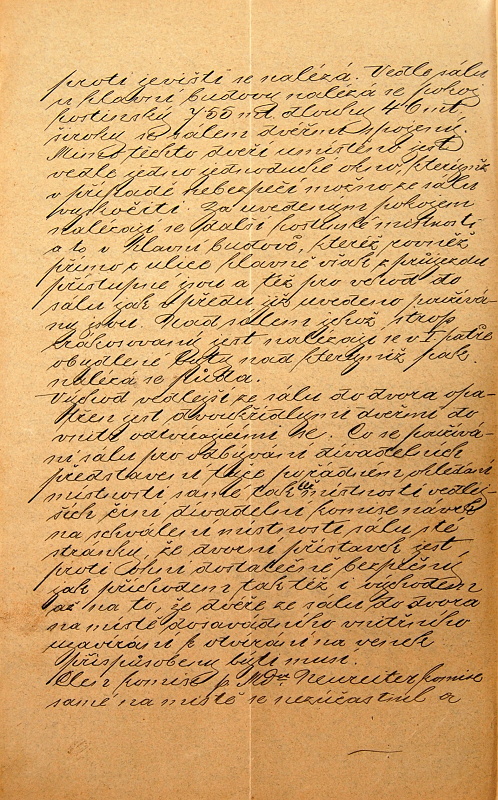 proti jevišti se nalézá. Vedle sálu
v hlavní budovy nalézá se pokoj
hostinský 7·55 mt. dlouhý 4·6 mt.
široký se sálem dveřmi spojený.
Mimo těchto dveří umístěno jest
vedle jedno jednoduché okno, kterýmž
v případě nebezpečí možno ze sálu
vyskočiti. Za uvedeným pokojem
nalézají se další hostinské místnosti
a to v hlavní budově, kteréž rovněž
přímo z ulice hlavně však z průjezdu
přístupné jsou a též pro vchod do
sálu jak v předu již uvedeno používá-
ny jsou. Nad sálem jehož strop
rákosovaný jest nalézají se v I patře
obydlené byty nad kterýmiž pak
nalézá se půda.
Východ vedlejší ze sálu do dvora opa-
třen jest dvoukřídlými dveřmi do
vnitř odtvírajícími se. Co se používá-
ní sálu pro odbývání divadelních
představení týče po řádném ohledání
místností samé jakož místností vedlej-
ších činí divadelní komise návrh
na schválení místnosti sálu s té
stránky, že dvorní přístavek jest
proti ohni dostatečně bezpečný
jak příchodem tak též i východem
až na to, že dvéře ze sálu do dvora
na místě dosavadního vnitřního
uzavírání k otvírání na venek
přispůsobeny býti musí.
Člen komise p. MDr. Neureiter komise
samé na místě se nezúčastnil a